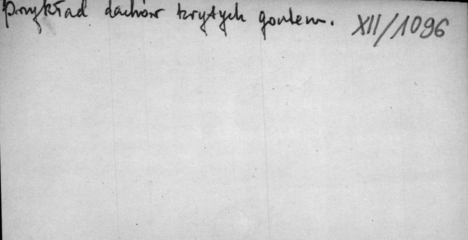 przykład dachów krytych gontem. XII/1096